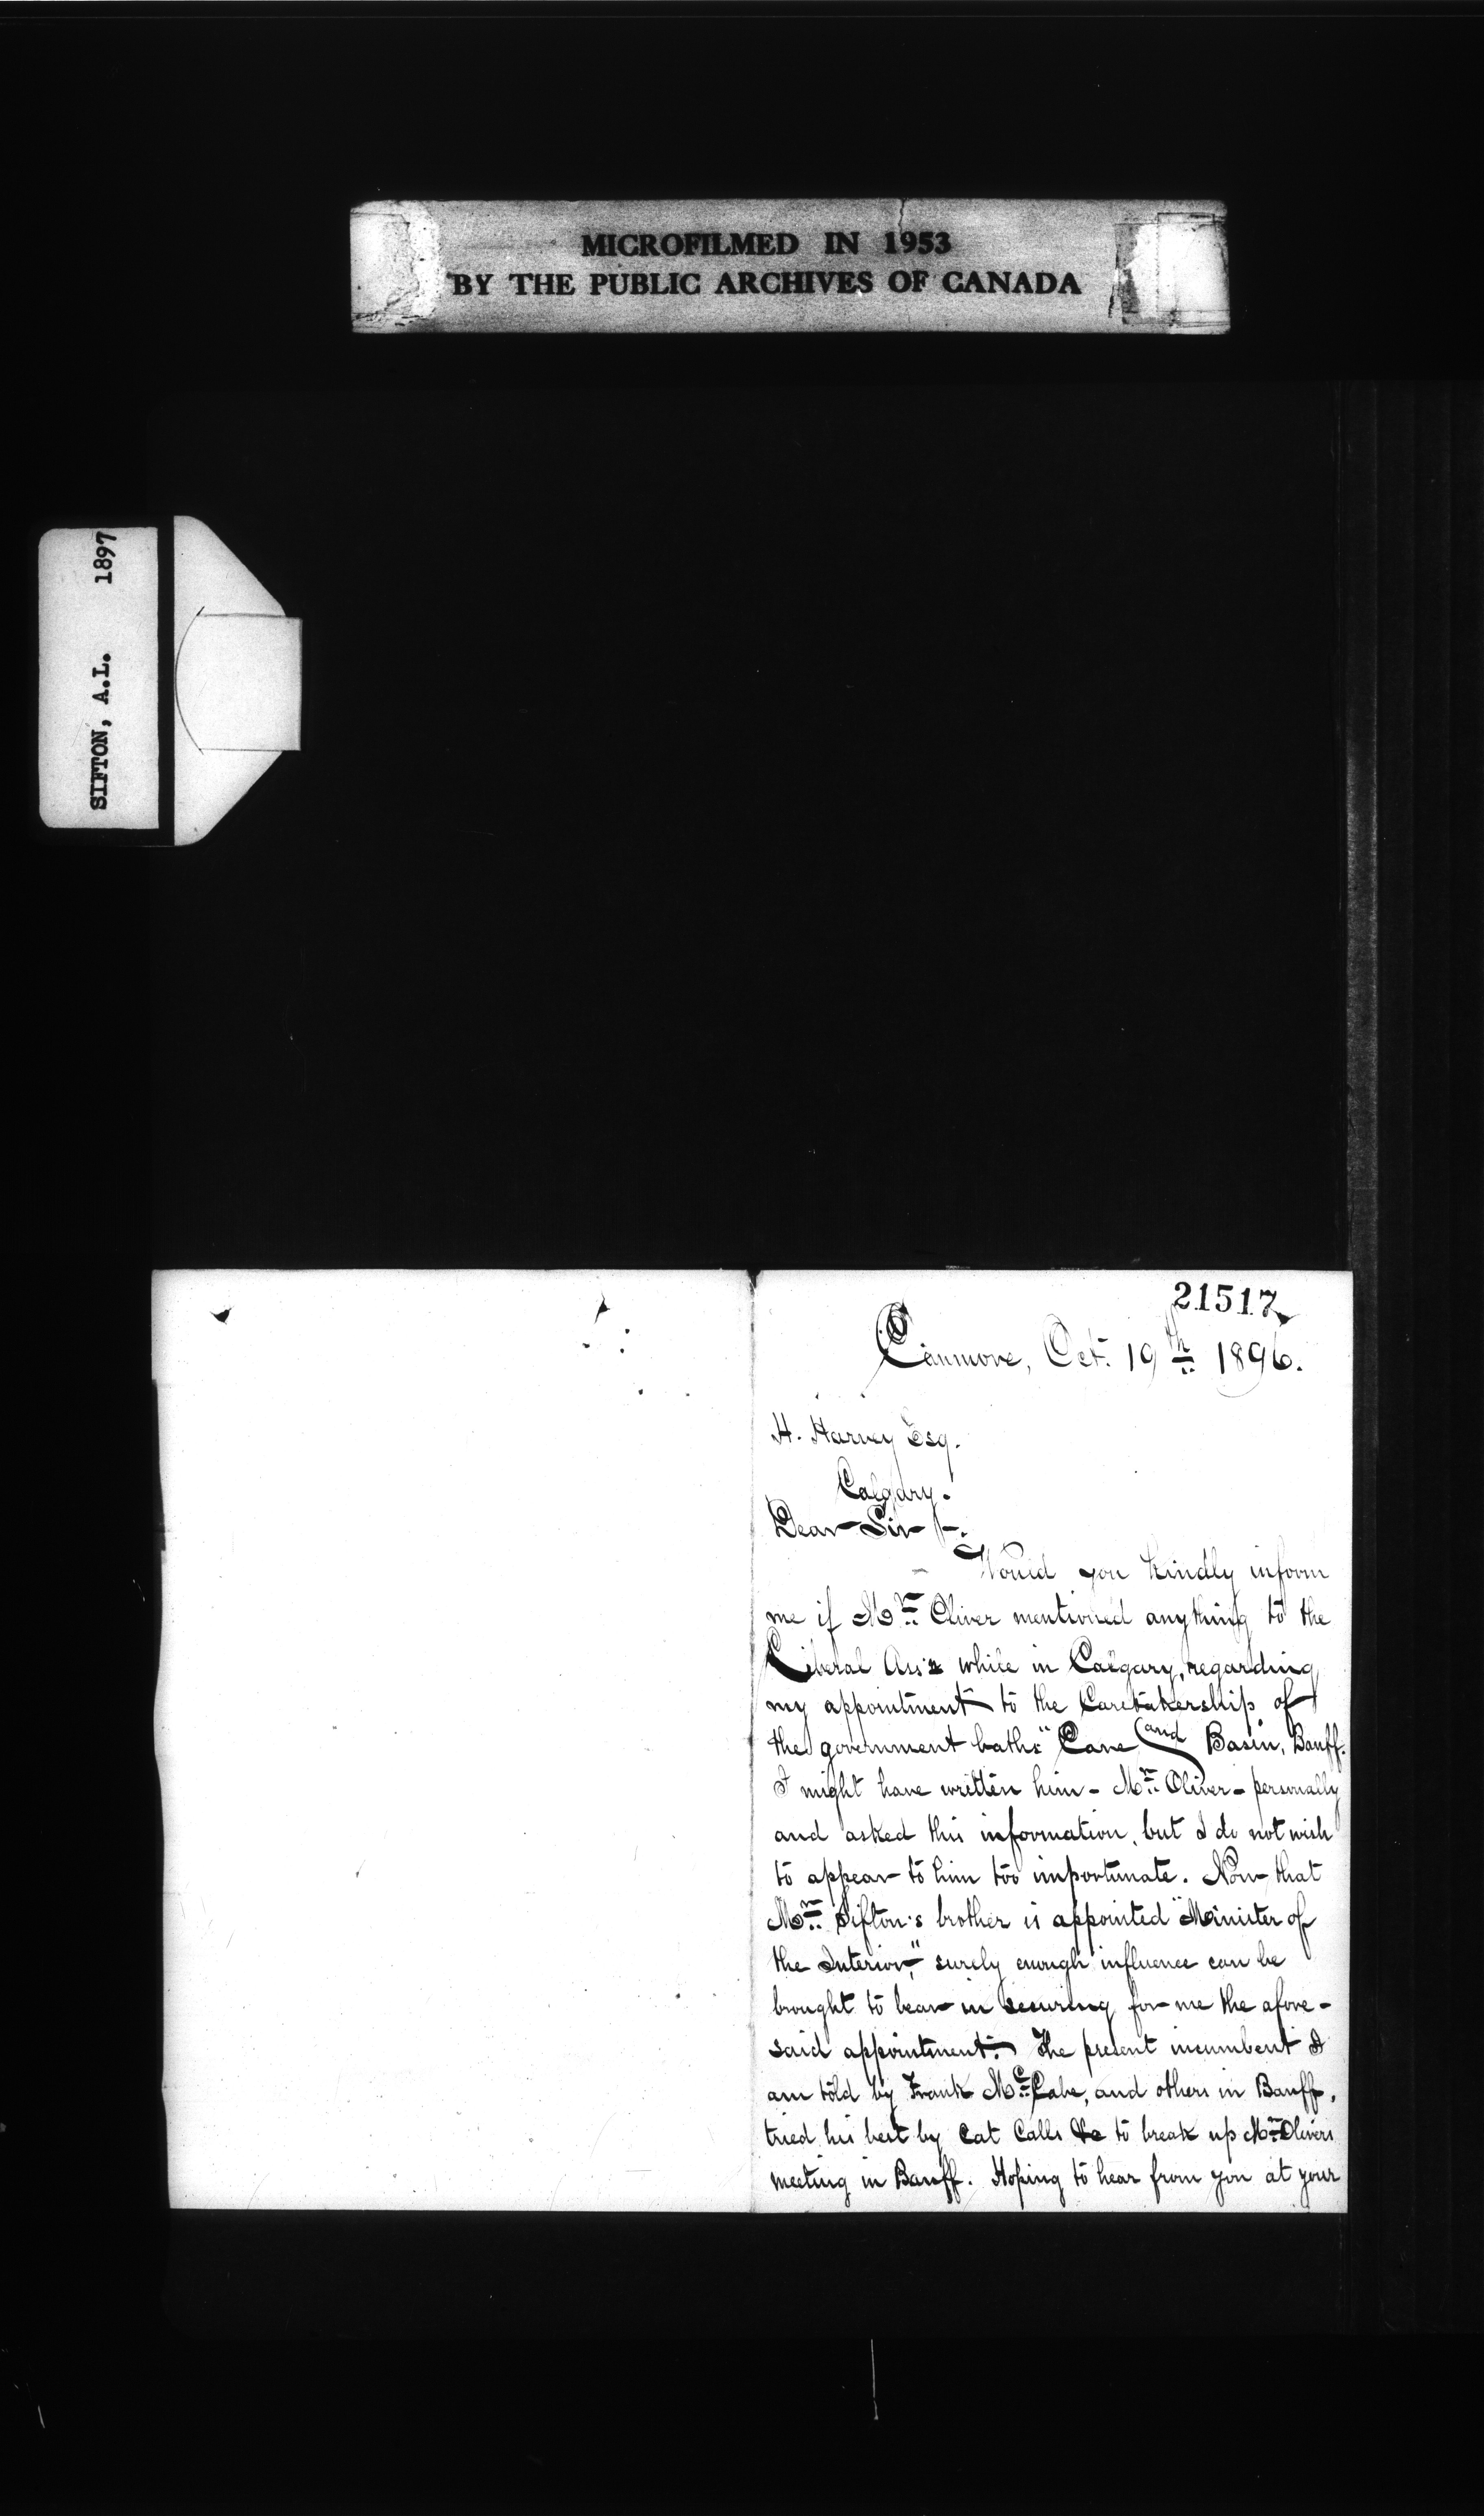 MICROFILMED IN 1953
BY THE PUBLIC ARCHIVES OF CANADA
SIFTON, A.L. 1897
21517
Canmore, Oct. 19th 1896.
H. Harvey Esq.
Calgary.
Dear Sir :-
Would you kindly inform
me if Mr. Oliver mentioned anything to the
Liberal Ass'n while in Calgary, regarding
my appointment to the Caretakership of
the government baths "Cave and Basin, Banff.
I might have written him - Mr. Oliver - personally
and asked this information, but I do not wish
to appear to him too importunate. Now that
Mr. Sifton's brother is appointed "Minister of
the Interior," surely enough influence can be
brought to bear in securing for me the afore-
said appointment. The present incumbent I
am told by Frank McCabe, and others in Banff,
tried his best by Cat Calls &c to break up Mr. Olivers
meeting in Banff. Hoping to hear from you at your